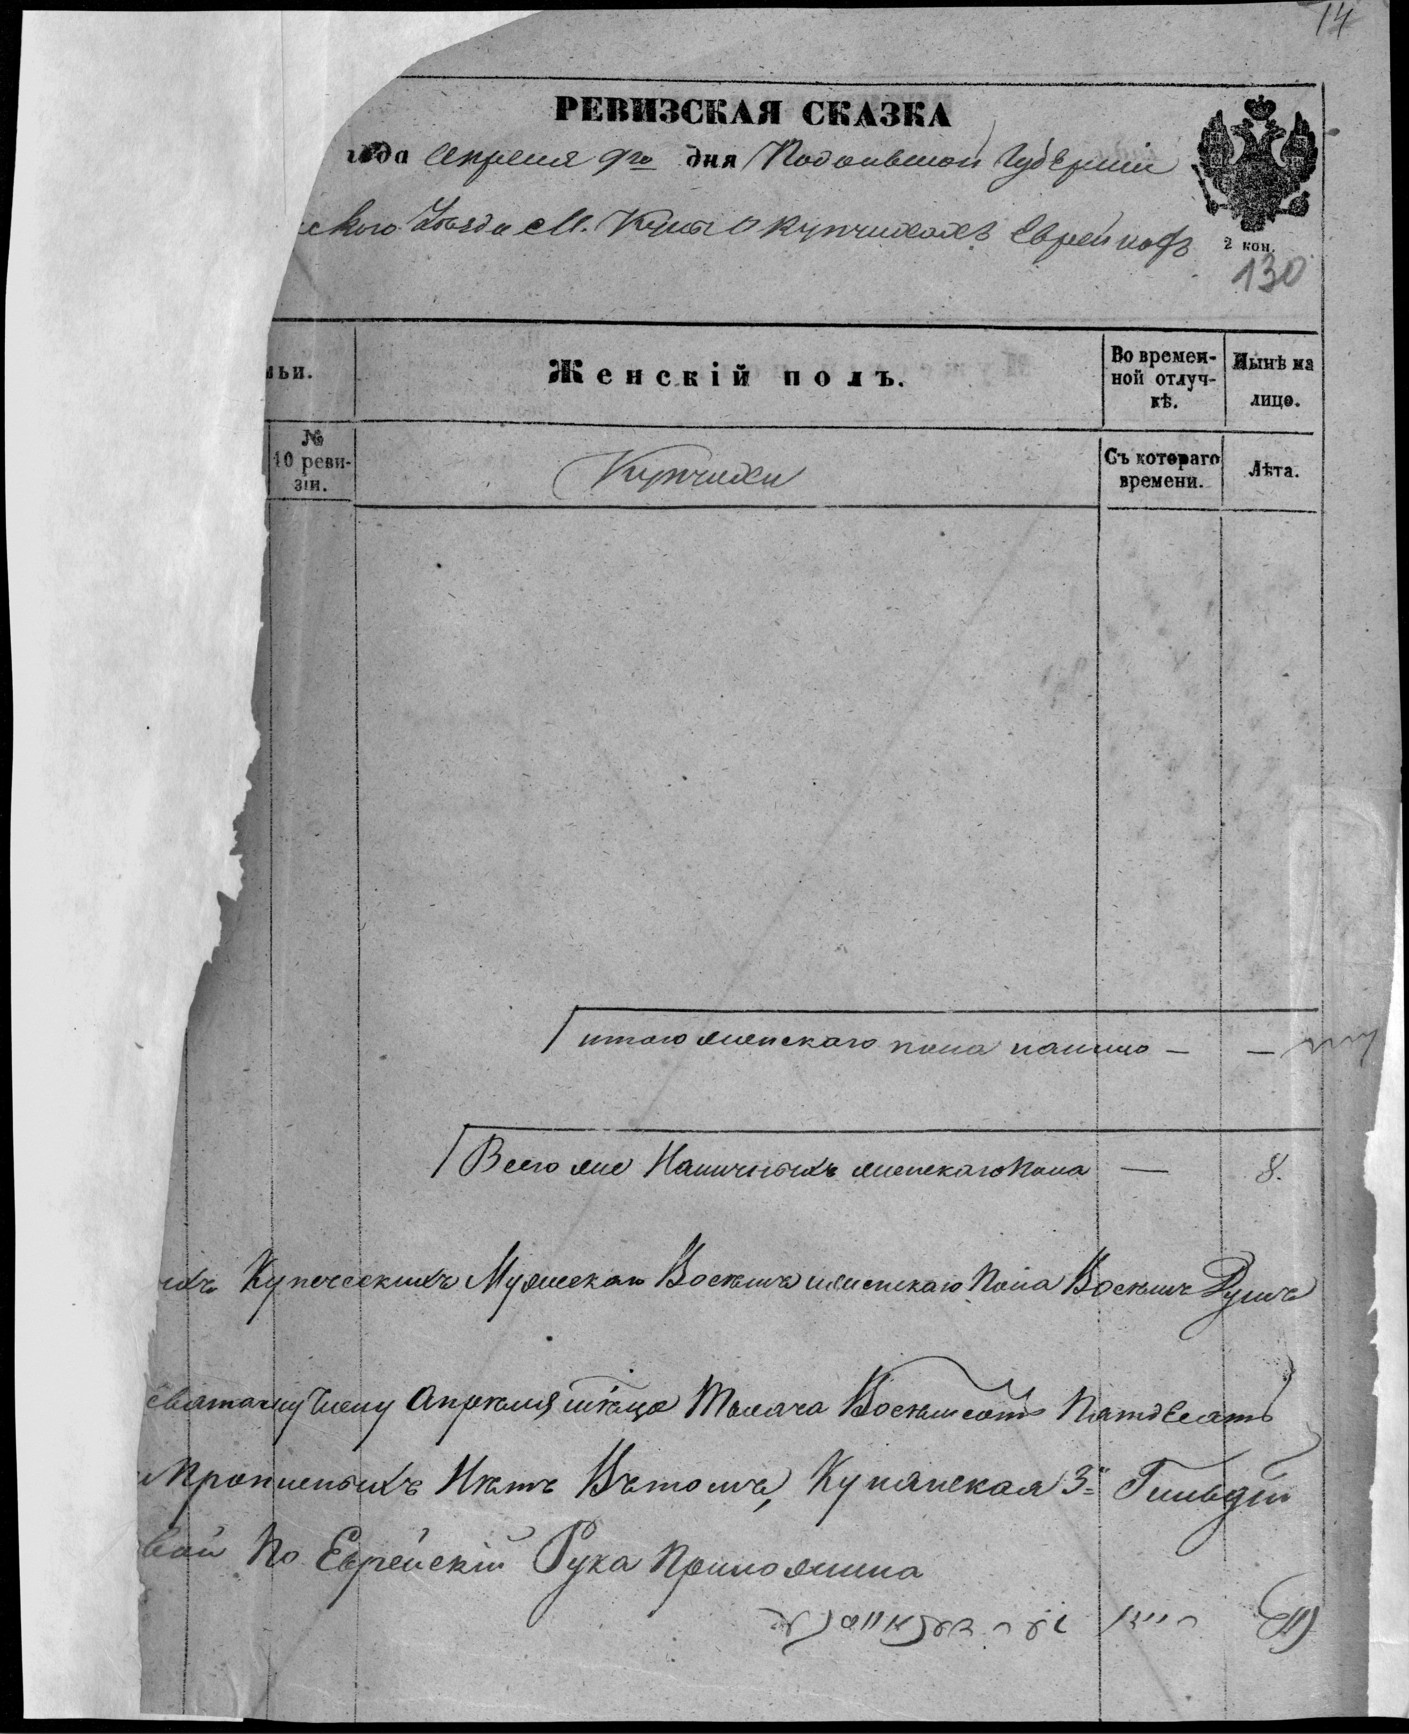 14
РЕВИЗСКАЯ СКАЗКА
года Апреля 9го дня Подольской Губерніи
ского Уѣзда М. Куны О купчихахъ Евреикахъ
2 коп.
130
мьи.
Женскій полъ.
Во времен-
ной отлуч-
кѣ.
Нынѣ на
лицо.
№
10 реви-
зіи.
Купчихи
Съ котораго
времени.
Лѣта.
итого женскаго пола налицо — —
Всего же Наличныхъ женскаго пола — 8.
ихъ Купеческихъ Мужескаго Восемь женскаго Пола Восемь Душъ
Апрѣля мѣсяца Тысяча Восемьсотъ Пятдесятъ
Прописныхъ Нѣтъ Вътомъ, Кунянская 3й Гильдіи
вой По Еврейскій Рука Приложила